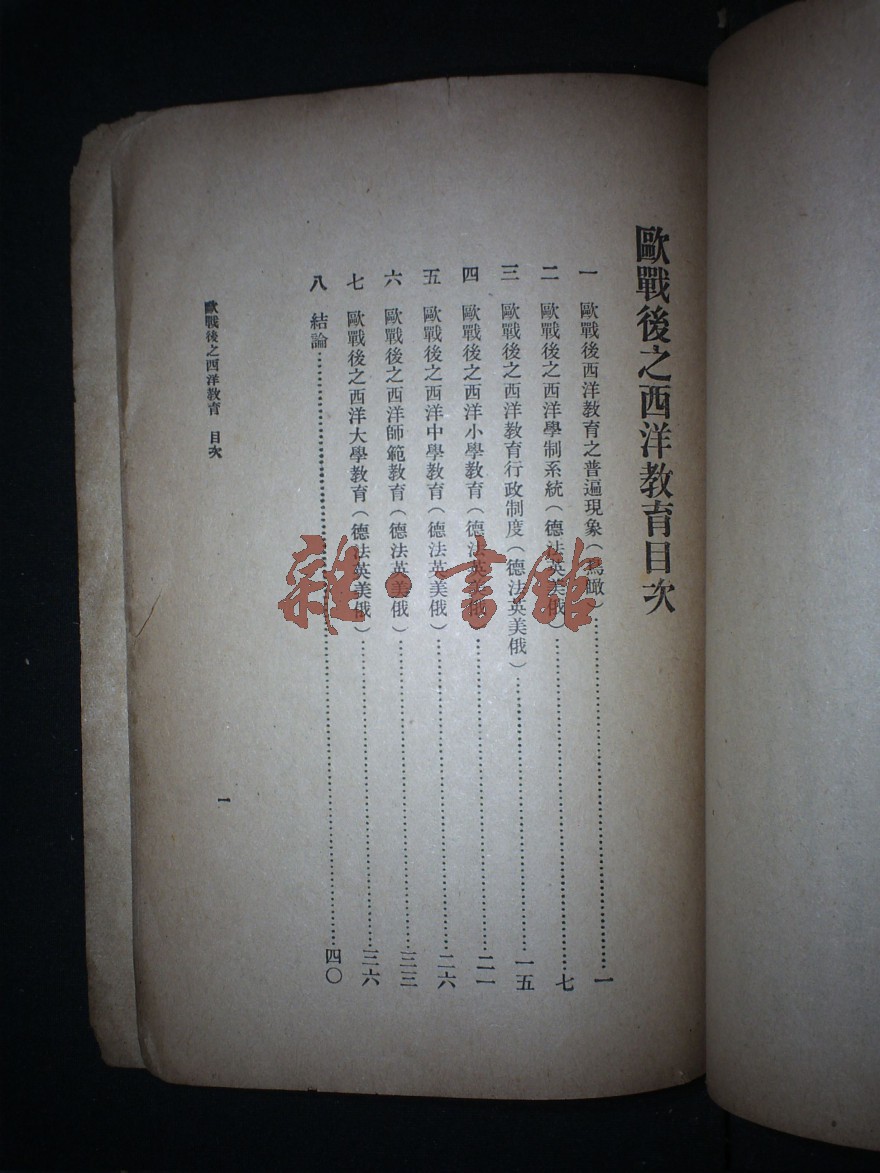 歐戰後之西洋教育目次
一 歐戰後西洋教育之普遍現象(鳥瞰)…………一
二 歐戰後之西洋學制系統(德法英美俄)…………七
三 歐戰後之西洋教育行政制度(德法英美俄)…………一五
四 歐戰後之西洋小學教育(德法英美俄)…………二一
五 歐戰後之西洋中學教育(德法英美俄)…………二六
六 歐戰後之西洋師範教育(德法英美俄)…………三三
七 歐戰後之西洋大學教育(德法英美俄)…………三六
八 結論…………四〇
歐戰後之西洋教育 目次
一
雜·書館